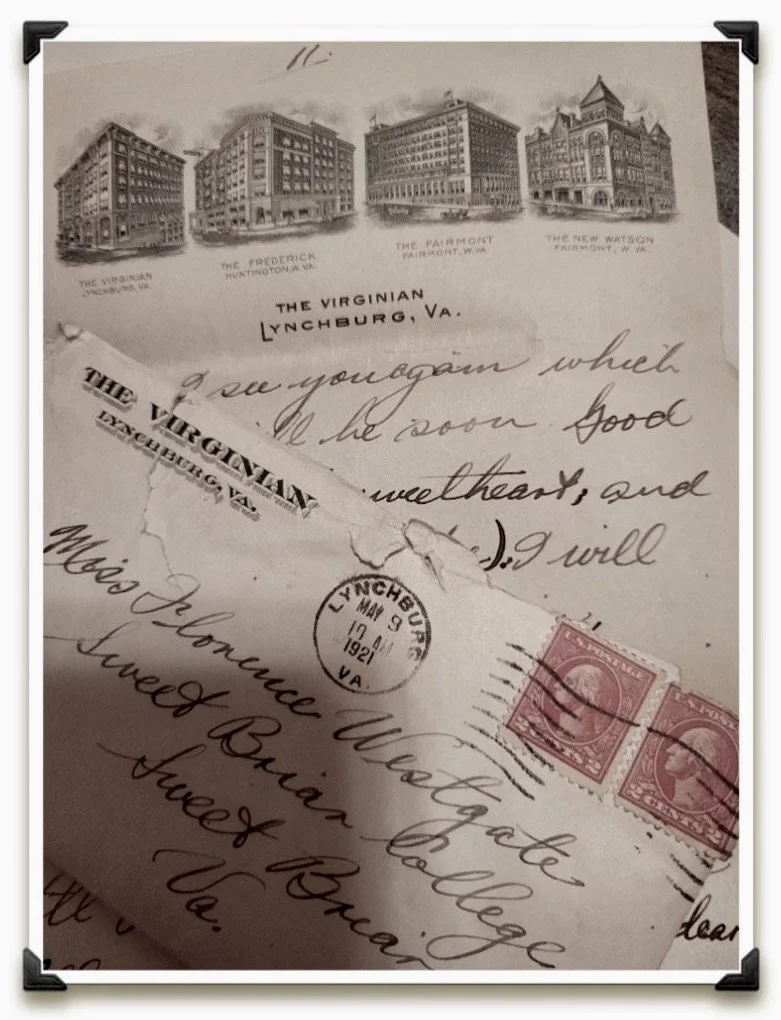 11-
THE VIRGINIAN
LYNCHBURG, VA.
THE FREDERICK
HUNTINGTON, W. VA.
THE FAIRMONT
FAIRMONT, W. VA.
THE NEW WATSON
FAIRMONT, W. VA.
THE VIRGINIAN
LYNCHBURG, VA.
I see you again which
be soon Good
sweetheart, and
). I will
THE VIRGINIAN
LYNCHBURG, VA.
LYNCHBURG
MAY 9
10 AM
1921
VA.
U.S. POSTAGE
2 CENTS 2
U.S. POST
2 CENTS 2
Miss Florence Westgate
Sweet Briar College
Sweet Briar
Va.
dear